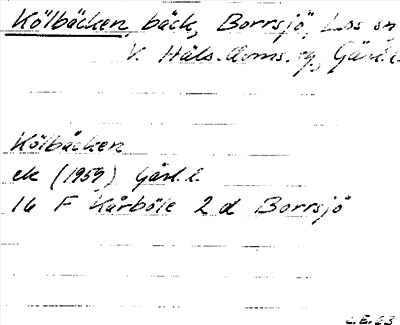 Kölbäcken, bäck, Borrsjö, Los sn,
V. Häls. doms. sg, Gävl. l.
Kölbäcken
ek (1959) Gävl. l.
16 F Kårböle 2 d Borrsjö
C.E. 63